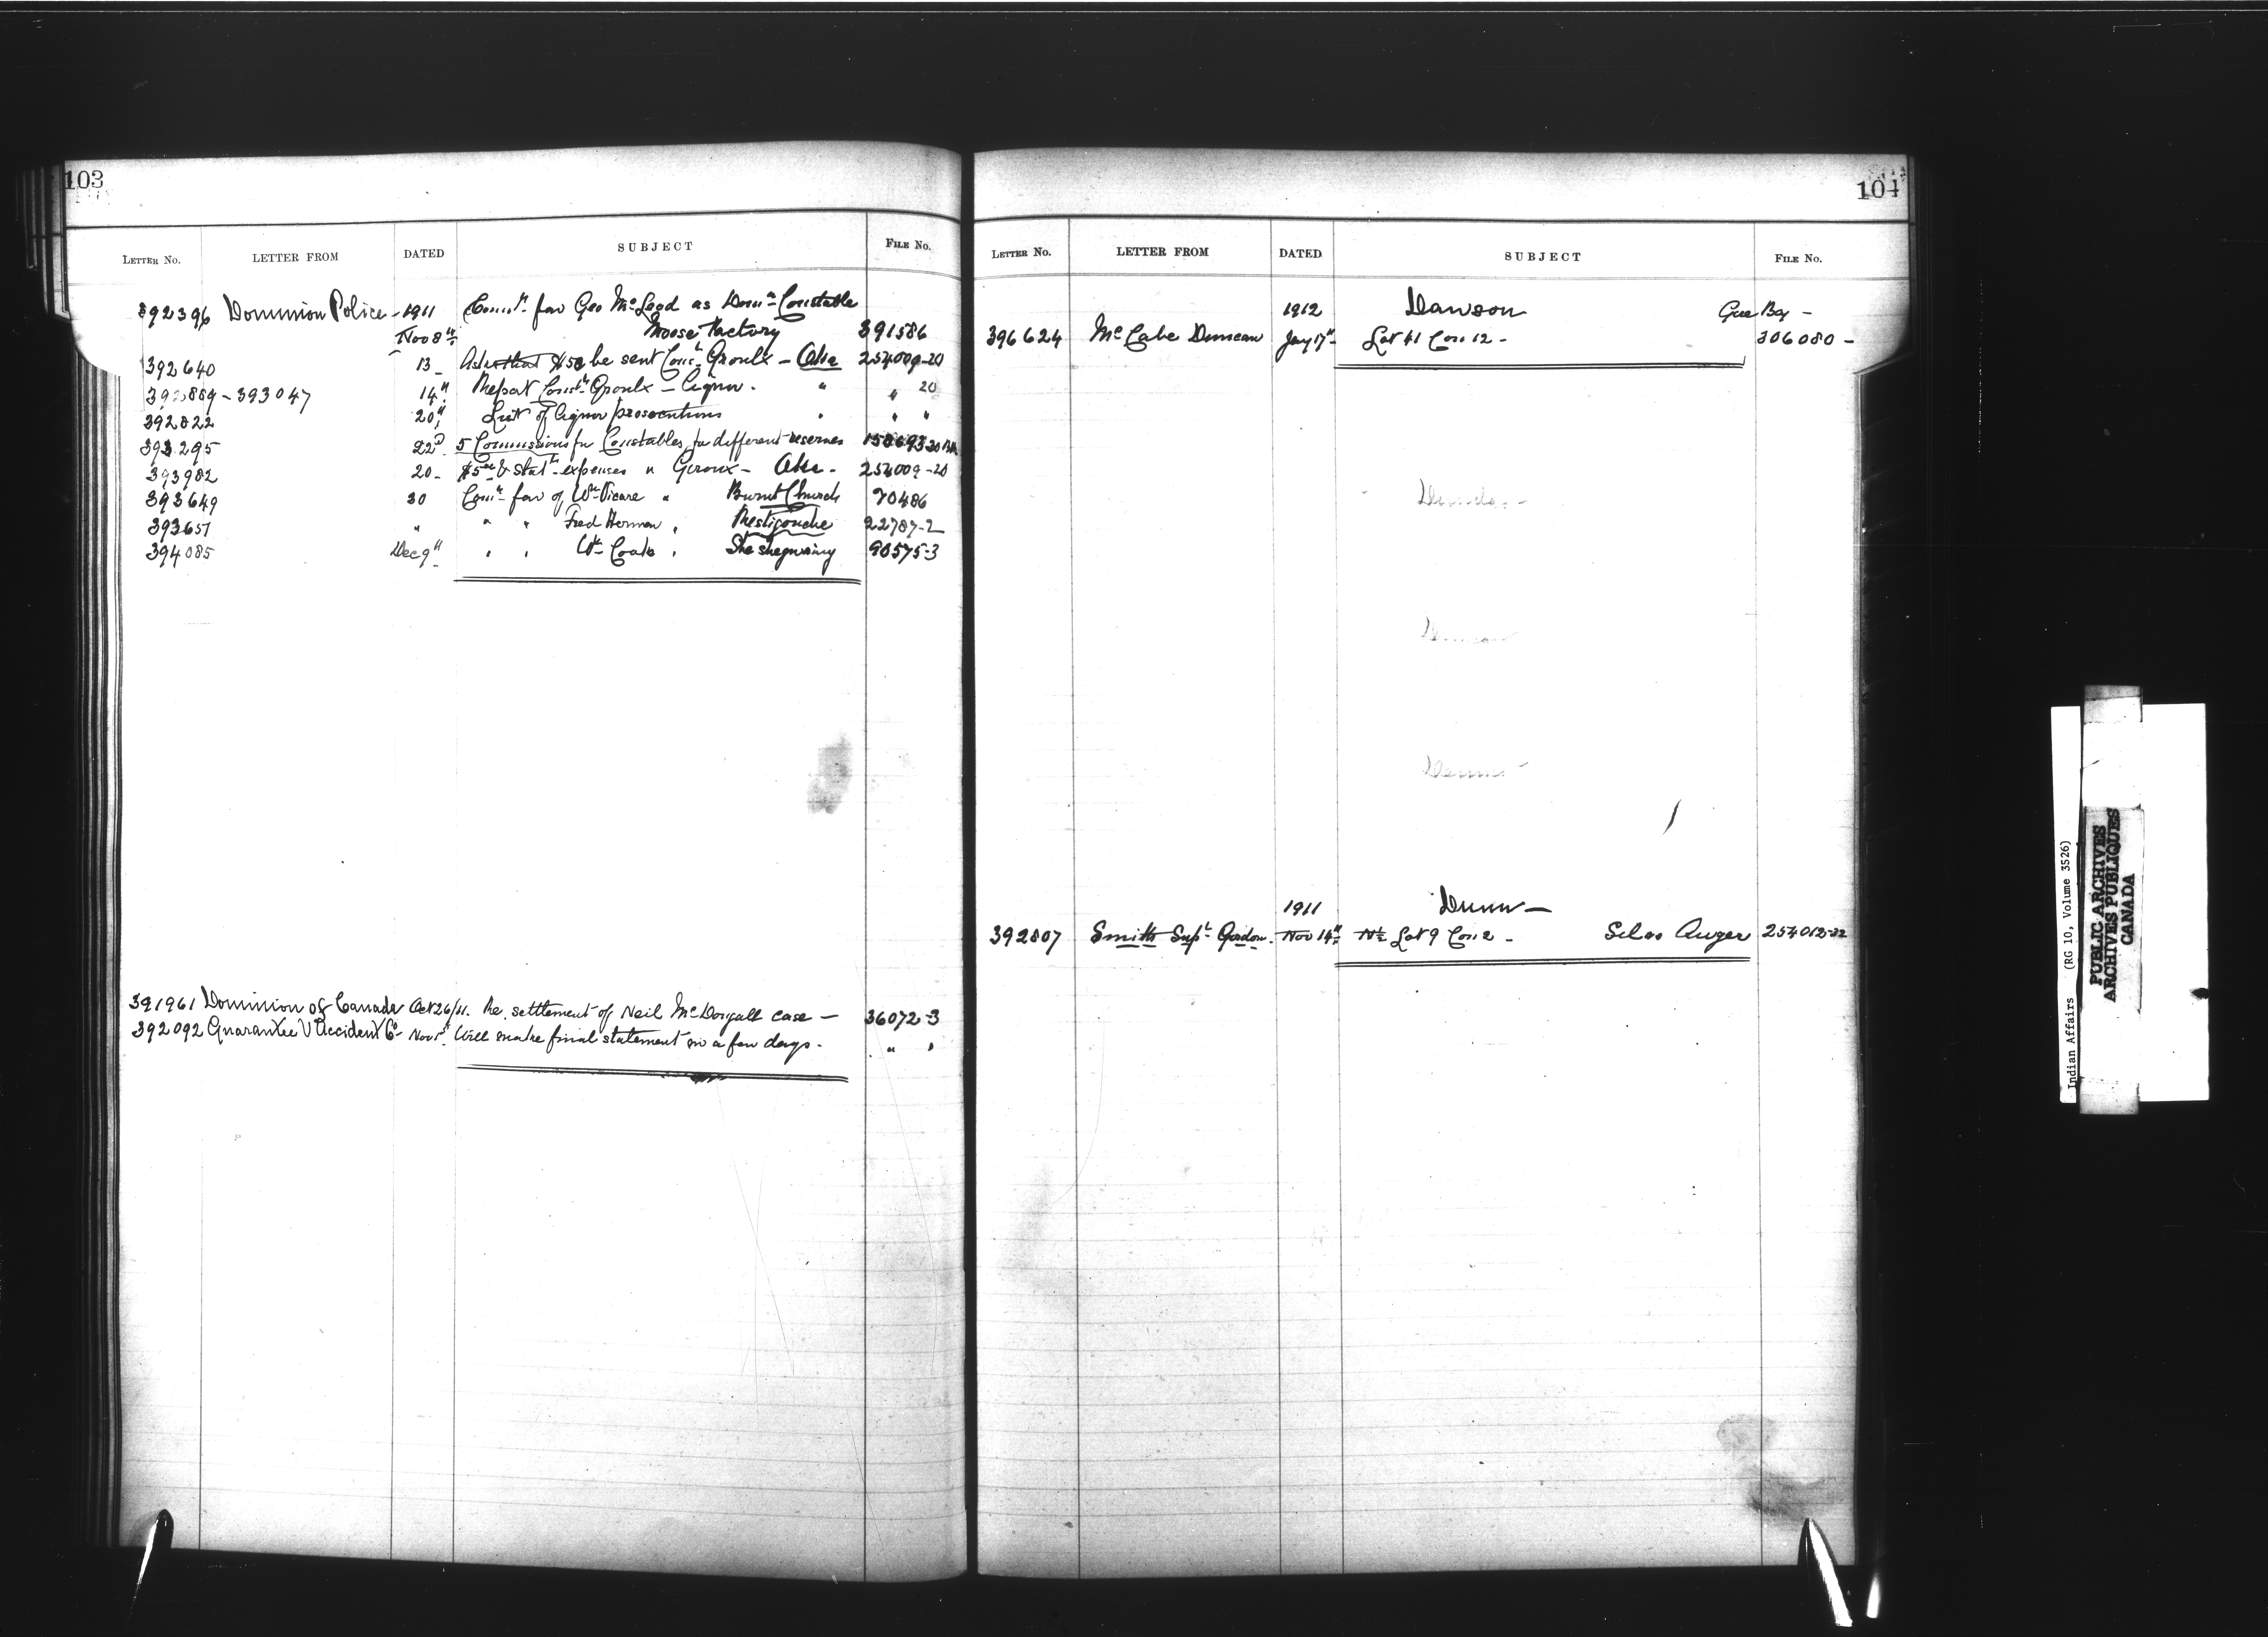 103
LETTER NO. LETTER FROM DATED SUBJECT FILE No.
392396 Dominion Police - 1911 Comn. fav Geo McLeod as Domn Constable
Nov 8th Moose Factory 391586
392640 13 - Asks that $50 be sent Const. Groulx - Oka 254009-20
392889 - 393047 14" Report Const. Groulx - Liquor. " " 20
392822 20" List of liquor prosecutions " " "
393295 22d 5 Commissions for Constables for different reserves
393982 20 - $5.00 & stat. expenses " Giroux - Oka - 254009-20
393649 30 Comn fav of Wm Vicare " Burnt Church 70486
393651 " " " Fred Herman " Restigouche 22787-2
394085 Dec 9" " " Wm Coate " Sheshegwaning 90575-3
391961 Dominion of Canada Oct 26/11. Re. settlement of Neil McDougall case - 36072-3
392092 Guarantee & Accident Co - Nov 1st Will make final statement in a few days - " "
104
LETTER NO. LETTER FROM DATED SUBJECT FILE No.
1912 Dawson Gore Bay -
396624 McCabe Duncan Jany 17" - Lot 41 Con 12 - 306080 -
1911 Dunn -
392807 Smith Supt. Gordon. Nov 14" N½ Lot 9 Con 2 - Silas Auger 254012-22
Indian Affairs (RG 10, Volume 3526)
PUBLIC ARCHIVES
ARCHIVES PUBLIQUES
CANADA